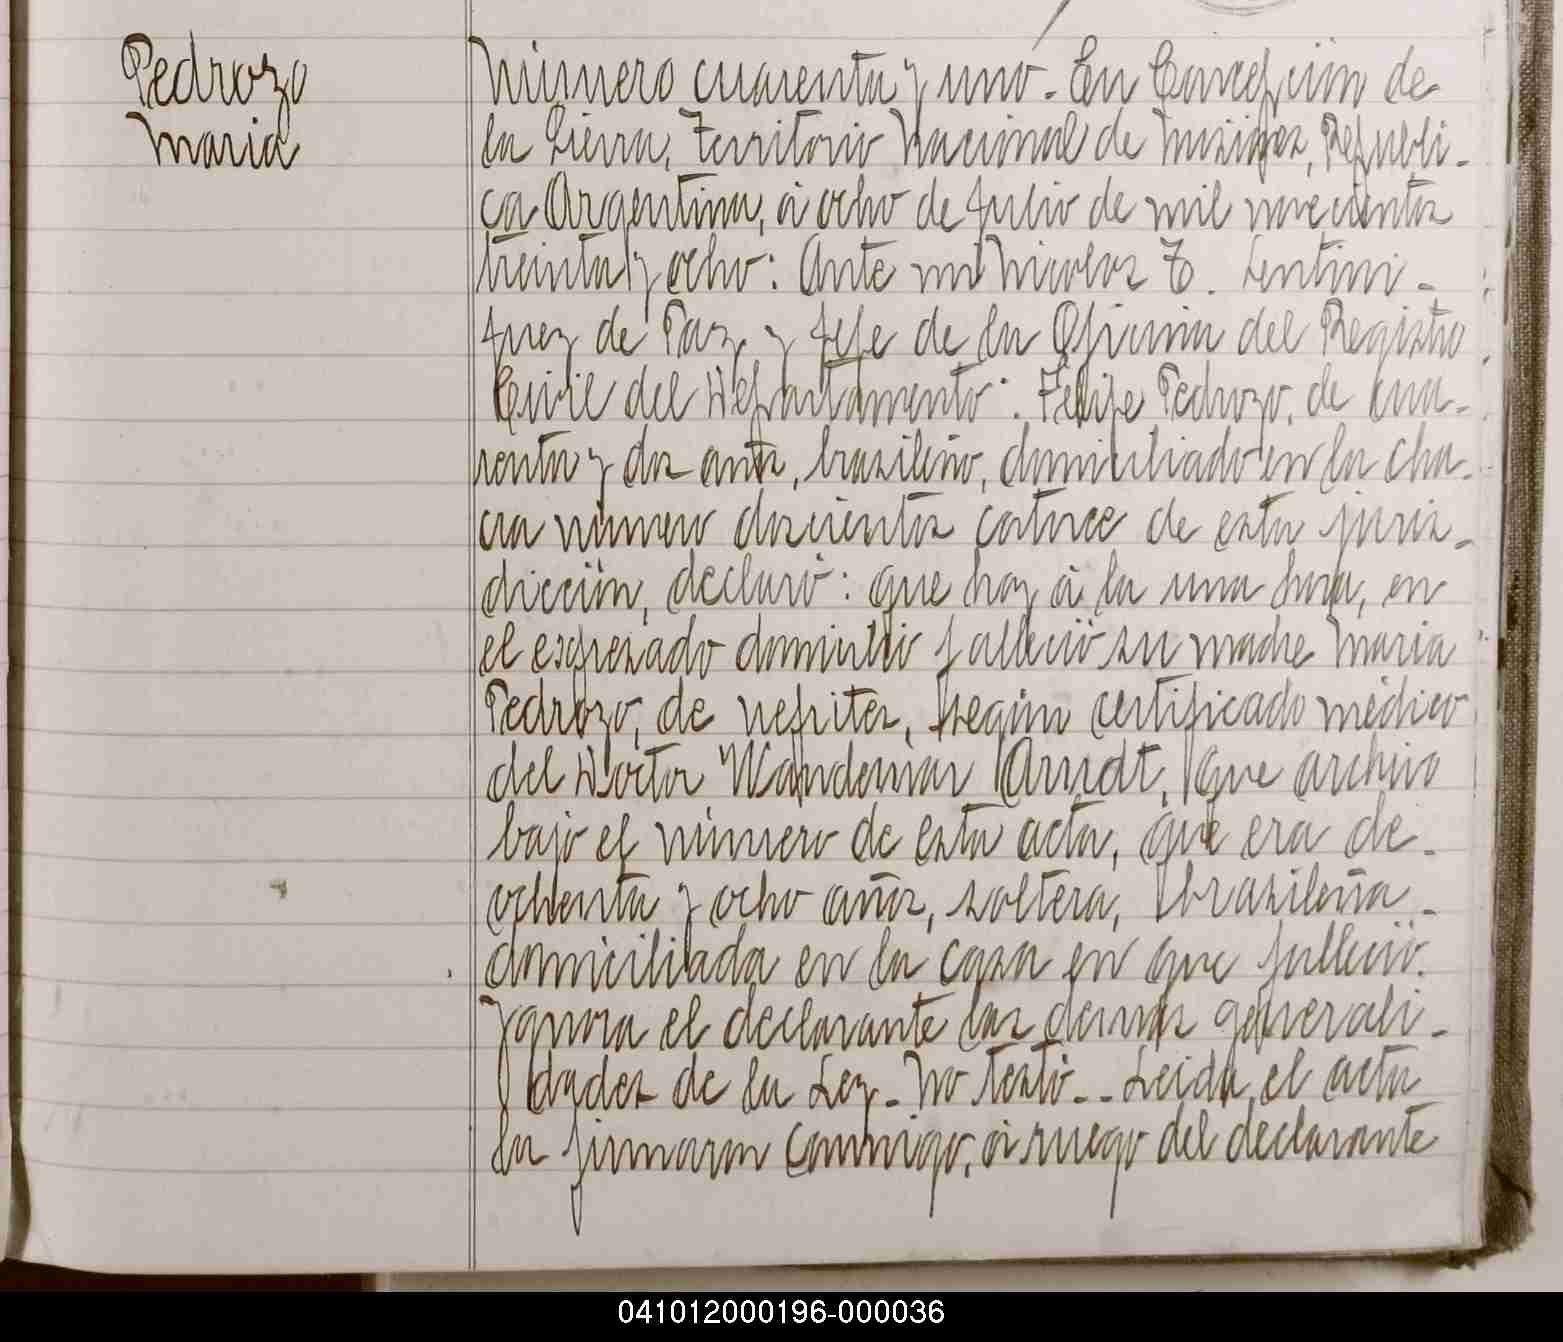 Pedrozo
Maria
Número cuarenta y uno. En Concepción de
la Sierra, Territorio Nacional de Misiones, Repúbli-
ca Argentina, á ocho de Julio de mil novecientos
treinta y ocho: Ante mi Nicolas T. Lentini -
Juez de Paz y Jefe de la Oficina del Registro
Civil del Departamento: Felipe Pedrozo, de cua-
renta y dos años, brasileño, domiciliado en la cha-
cra número doscientos catorce de esta juris-
dicción, declaró: que hoy á la una hora, en
el expresado domicilio falleció su madre Maria
Pedrozo, de nefrites, según certificado médico
del Doctor Wandemar Arndt, que archivo
bajo el número de esta acta, que era de -
ochenta y ocho años, soltera, brasileña -
domiciliada en la casa en que falleció.
Ygnora el declarante las demas generali-
dades de la Ley. No testó.-- Leida el acta
la firmaron conmigo, á ruego del declarante
041012000196-000036